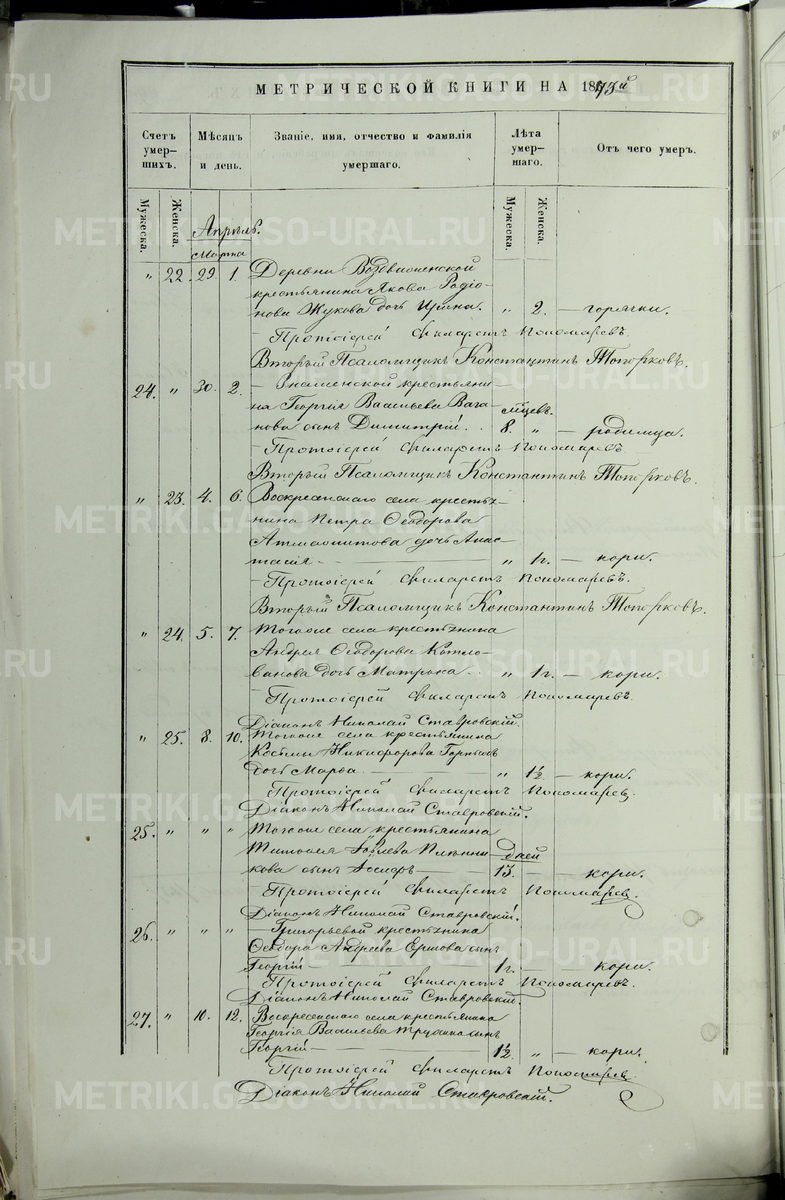 МЕТРИЧЕСКОЙ КНИГИ НА 1873й
Счетъ умер-шихъ.
Мѣсяцъ и день.
Званіе, имя, отчество и фамилія умершаго.
Лѣта умер-шаго.
Отъ чего умеръ.
Мужеска. Женска.
Мужеска. Женска.
Апрѣль.
Марта
" 22. 29. 1. Деревни Воздвиженской
крестьянина Якова Родіо-
нова Жукова дочь Ирина. " 2. — горячки.
— Протоіерей Филаретъ Пономаревъ
Вторый Псаломщикъ Константинъ Топорковъ.
24. " 30. 2. — Знаменской крестьяни-
на Георгія Васильева Вага-
мѣсяцев.
нова сынъ Димитрій. . 8. " — родимца.
— Протоіерей Филаретъ Пономаревъ
Вторый Псаломщикъ Константинъ Топорковъ.
" 23. 4. 6. Воскресенскаго села кресть-
янина Петра Ѳеодорова
дочь Анас-
тасія — " 1г. — кори.
— Протоіерей Филаретъ Пономаревъ.
Вторый Псаломщикъ Константинъ Топорковъ.
" 24. 5. 7. Тогоже села крестьянина
Андрея Ѳеодорова Котло-
ванова дочь Матрона . . " 1г. — кори.
— Протоіерей Филаретъ Пономаревъ.
Діаконъ Николай Ставровскій.
" 25. 8. 10. Тогоже села крестьянина
Косьмы Никифорова
дочь Марѳа — " 1½ — кори.
Протоіерей Филаретъ Пономаревъ.
Діаконъ Николай Ставровскій.
25. " " " Тогоже села крестьянина
дней
кова сынъ Іосифъ — 13. — кори.
Протоіерей Филаретъ Пономаревъ
Діаконъ Николай Ставровскій.
26. " " " — Григорьевой крестьянина
Ѳеодора Андреева Ершова сынъ
Георгій — 1г. — кори.
Протоіерей Филаретъ Пономаревъ.
Діаконъ Николай Ставровскій.
27. " 10. 12. Воскресенскаго села крестьянина
Георгія Васильева сынъ
Георгій — 1½ " — кори.
Протоіерей Филаретъ Пономаревъ
Діаконъ Николай Ставровскій.
METRIKI.GASO-URAL.RU